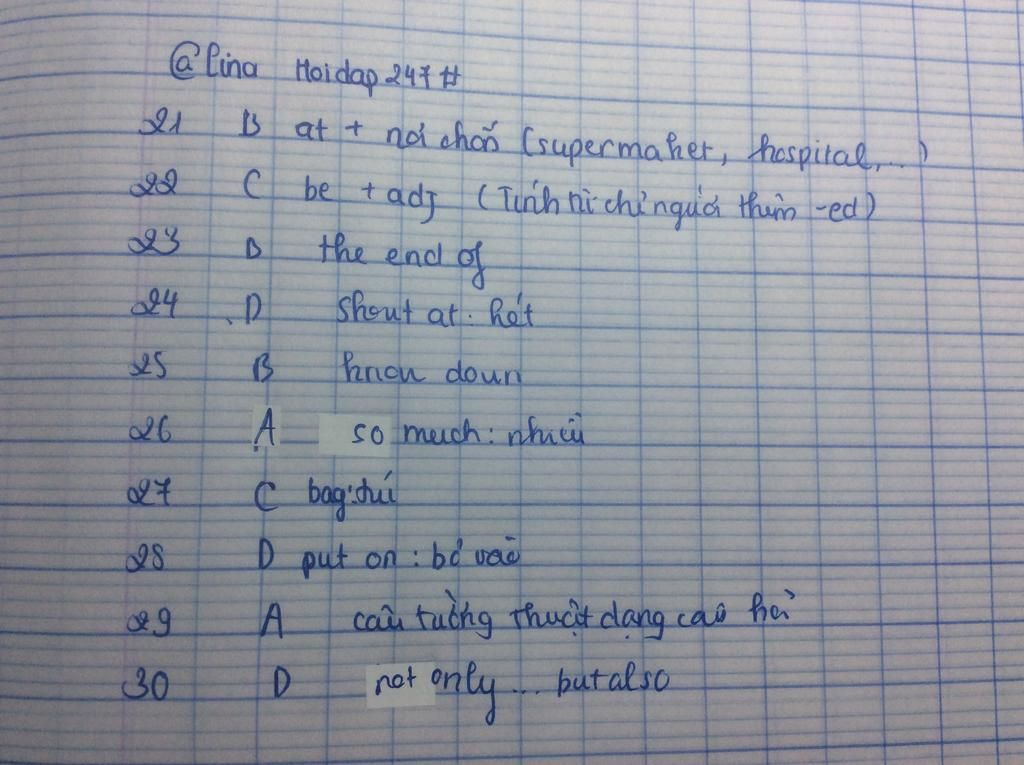 @lina Hoidap247#
21 B at + nơi chốn (supermaket, hospital,...)
22 C be + adj (Tính từ chỉ người thêm -ed)
23 B the end of
24 D Shout at: hét
25 B knou doun
26 A so much: nhiều
27 C bag: túi
28 D put on: bỏ vào
29 A câu tường thuật dạng câu hỏi
30 D not only... but also